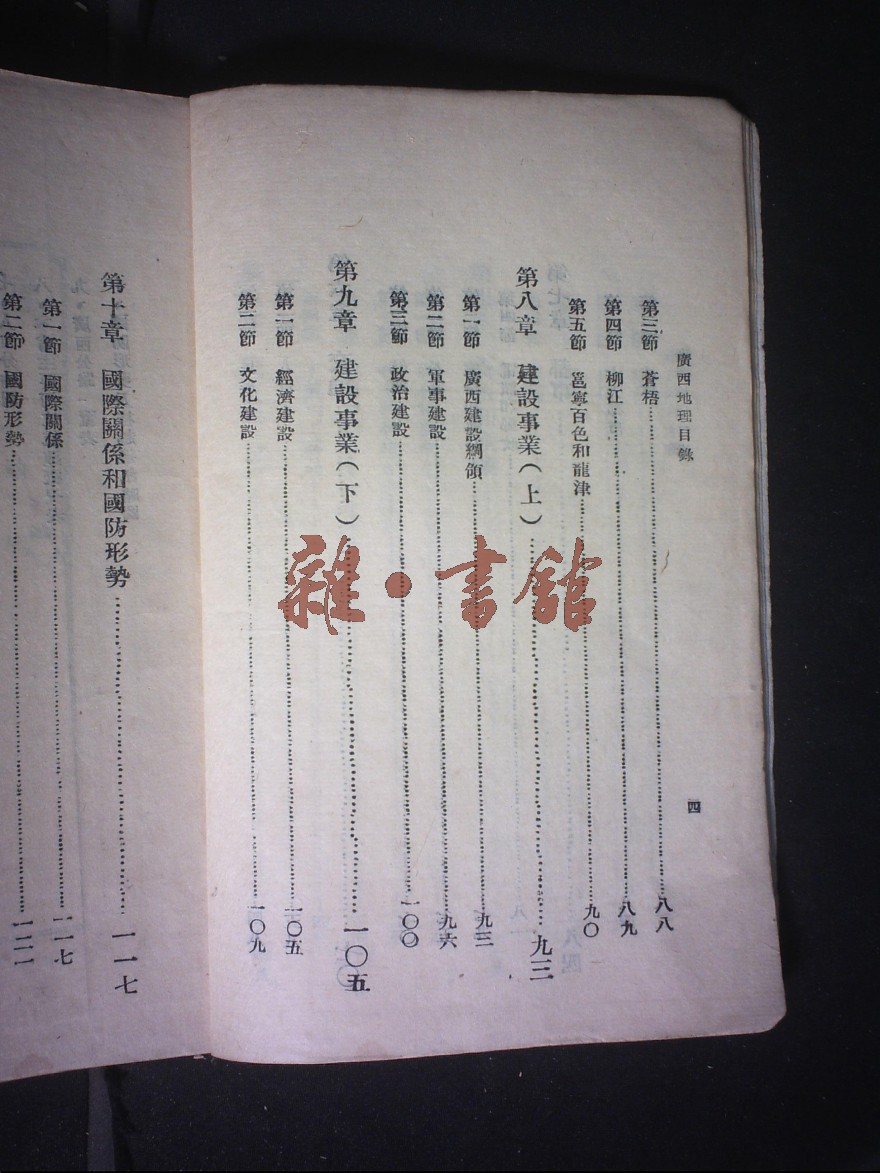 廣西地理目錄
四
第三節 蒼梧……八八
第四節 柳江……八九
第五節 邕寧百色和龍津……九〇
第八章 建設事業(上)……九三
第一節 廣西建設綱領……九三
第二節 軍事建設……九六
第三節 政治建設……一〇〇
第九章 建設事業(下)……一〇五
第一節 經濟建設……一〇五
第二節 文化建設……一〇九
第十章 國際關係和國防形勢……一一七
第一節 國際關係……一一七
第二節 國防形勢……
雜·書館